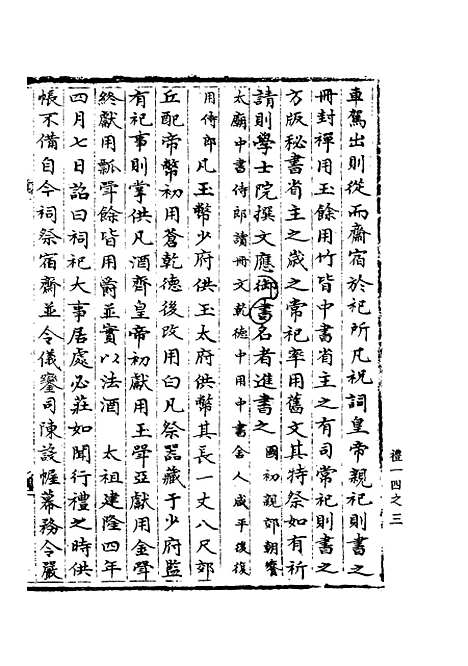 車駕出則從而齋宿於祀所凡祝詞皇帝親祀則書之
冊封禪用玉餘用竹皆中書省主之有司常祀則書之
方版秘書省主之歲之常祀率用舊文其特祭如有祈
請則學士院撰文應御書名者進書之國初親郊朝饗
太廟中書侍郎讀冊文乾德中用中書舍人咸平後復
用侍郎凡玉幣少府供玉太府供幣其長一丈八尺郊
丘配帝幣初用蒼乾德後改用白凡祭器藏于少府監
有祀事則掌供凡酒齊皇帝初獻用玉斝亞獻用金斝
終獻用瓢斝餘皆用爵並實以法酒 太祖建隆四年
四月七日詔曰祠祀大事居處必莊如聞行禮之時供
帳不備自今祠祭宿齋並令儀鑾司陳設幄幕務令嚴
禮一四之三